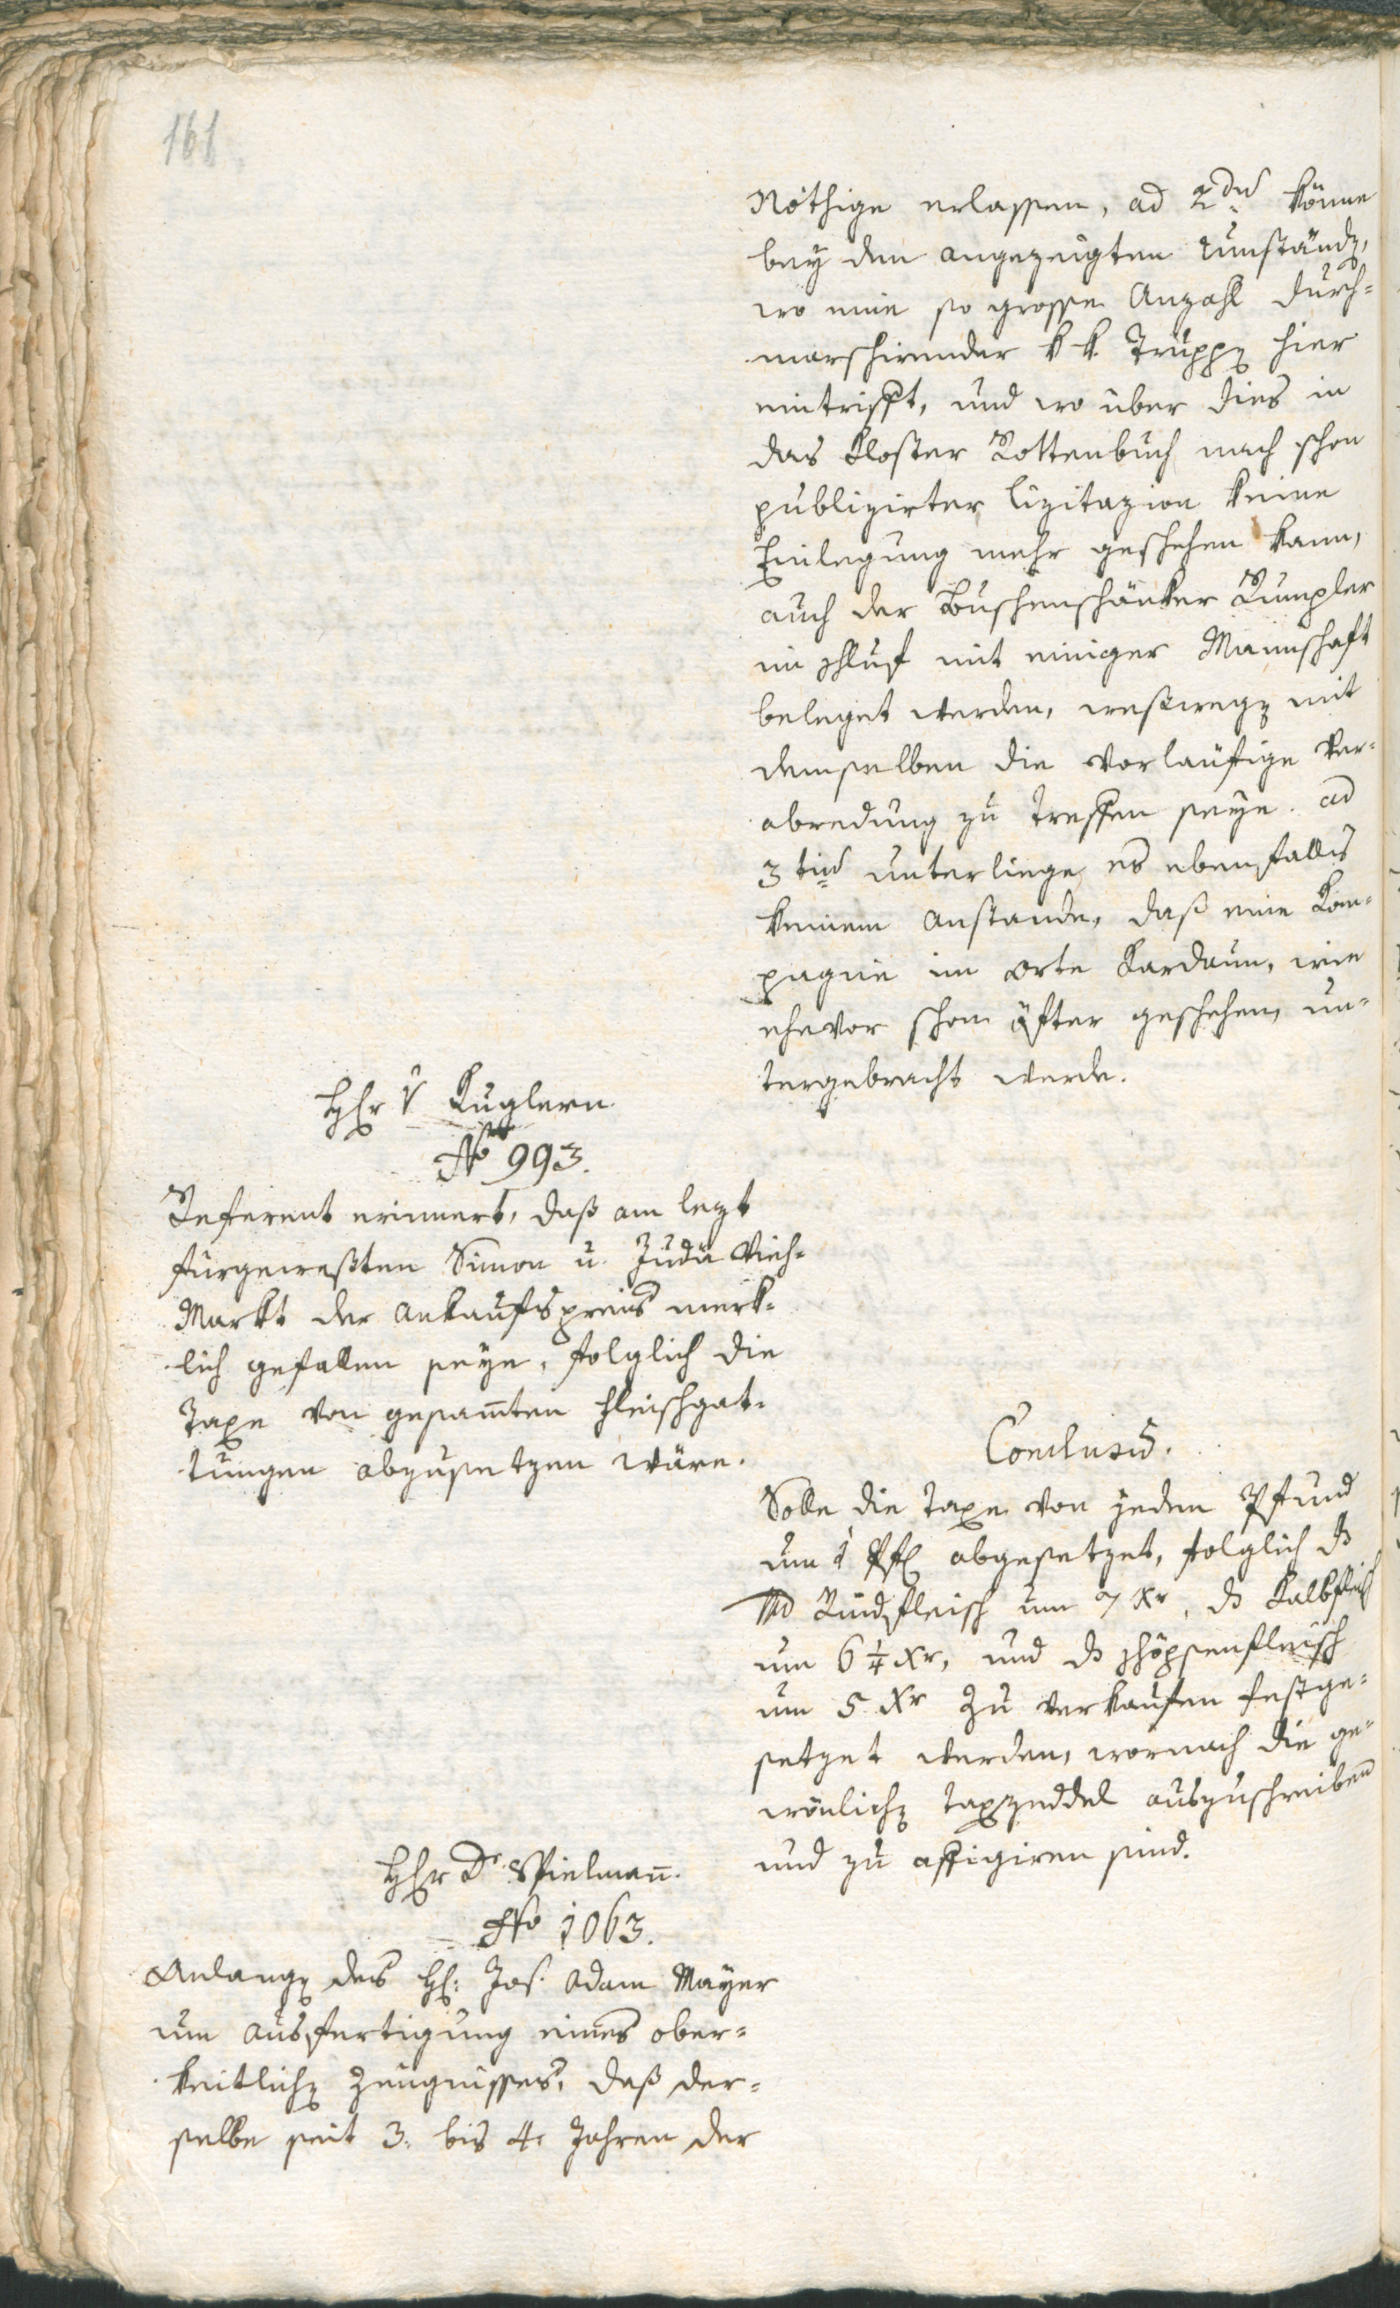 161
Nöthige erlassen, ad 2dum könne
bey den angezeigten Umständen,
wo eine so grosse Anzahl durch-
marschirender k k Truppen hier
eintrifft, und wo über dies in
das Kloster Rottenbuch nach schon
publizirter Lizitazion keine
Einlegung mehr geschehen kann,
auch der Buschenschänker Rumpler
im mit einiger Mannschaft
beleget werden, weßwegen mit
demselben die vorläufige Ver-
abredung zu treffen seye. ad
3tium unterliege es ebenfalls
keinem Anstande, daß eine Kom-
pagnie im Orte Kardaun, wie
ehevor schon öfter geschehen, un-
tergebracht werde.
Hr v Kuglern
No 993.
Referent erinnert, daß am lezt
fürgewesten Simon u. Judä Vieh-
Markt der Ankaufspreis merk-
lich gefallen seye, folglich die
Taxe von gesam̄ten Fleischgat-
tungen abzusetzen wäre.
Conclusum.
Solle die Taxe von jedem Pfund
um 1 Pf abgesetzet, folglich ds
Pfd Rindfleisch um 7 Xr, ds Kalbfleisch
um 6 1/4 Xr, und ds Schöpsenfleisch
um 5 Xr zu verkaufen festge-
setzet werden, wornach die ge-
wönlichen Taxzeddel auszuschreiben
und zu affigiren sind.
Hr Dr Spielmañ.
No 1063.
Anlangen des H: Jos. Adam Mayer
um Ausfertigung eines ober-
keitlichen Zeugnisses, daß der-
selbe seit 3. bis 4. Jahren der